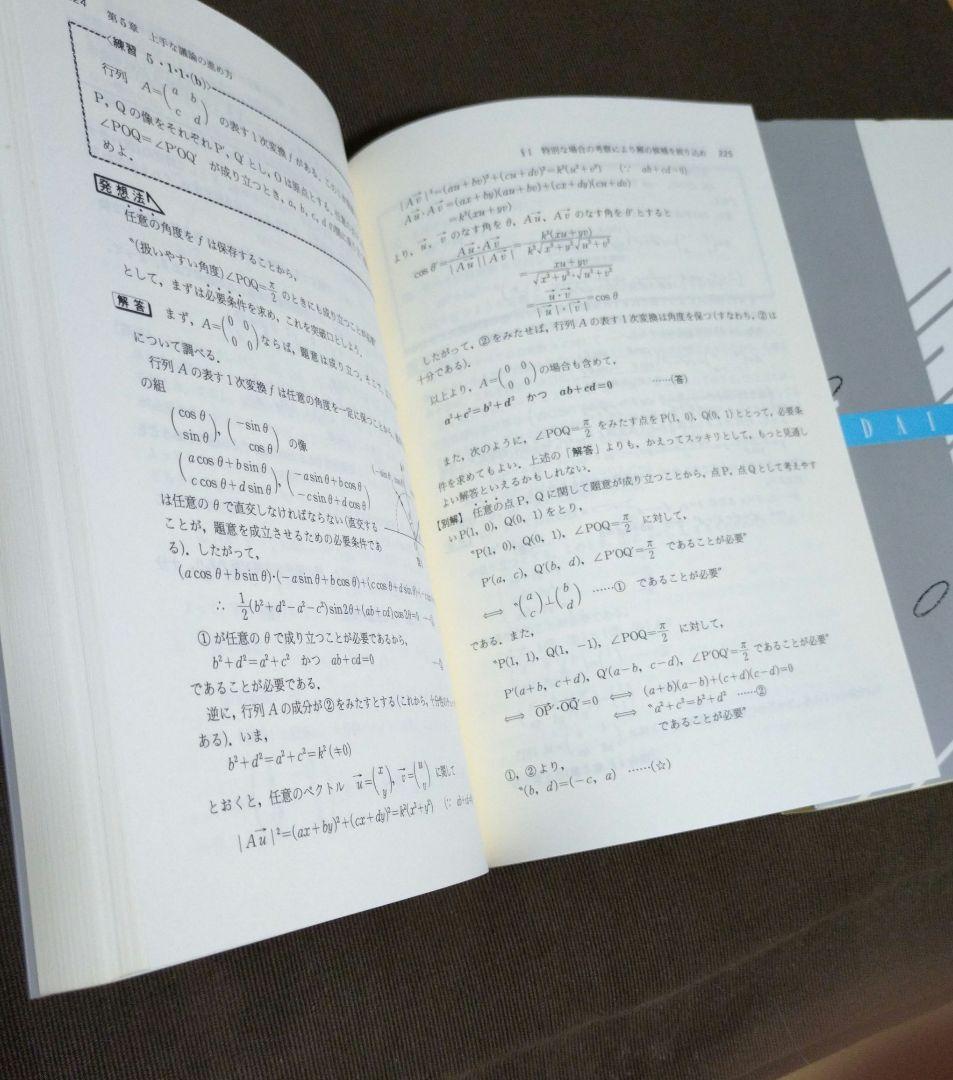 24 第5章 上手な議論の進め方
〈練習 5・1・1・(b)〉
行列 A=(a b / c d) の表す1次変換 f がある.
P, Q の像をそれぞれ P′, Q′ とし, O は原点とする.
∠POQ=∠P′OQ′ が成り立つとき, a, b, c, d の間に
めよ.
発想法
任意の角度を f は保存することから,
“(扱いやすい角度)∠POQ=π/2 のときにも成り立つことが必要
として, まずは必要条件を求め, これを突破口としよう.
解答 まず, A=(0 0 / 0 0) ならば, 題意は成り立つ.
について調べる.
行列 A の表す1次変換 f は任意の角度を一定に保つことから,
の組
(cosθ / sinθ), (−sinθ / cosθ) の像
(acosθ+bsinθ / ccosθ+dsinθ), (−asinθ+bcosθ / −csinθ+dcosθ)
は任意の θ で直交しなければならない(直交する
ことが, 題意を成立させるための必要条件であ
る). したがって,
(acosθ+bsinθ)・(−asinθ+bcosθ)+(ccosθ+dsinθ)
∴ 1/2(b²+d²−a²−c²)sin2θ+(ab+cd)cos2θ=0
①が任意の θ で成り立つことが必要であるから,
b²+d²=a²+c² かつ ab+cd=0
であることが必要である.
逆に, 行列 A の成分が②をみたすとする(これから, 十分性
ある). いま,
b²+d²=a²+c²=k²(≠0)
とおくと, 任意のベクトル u→=(x / y), v→=(u / v) に関して
|Au→|²=(ax+by)²+(cx+dy)²=k²(x²+y²) (∵
§1 特別な場合の考察により解の候補を絞り込め 225
|Av→|²=(au+bv)²+(cu+dv)²=k²(u²+v²) (∵ ab+cd=0)
Au→・Av→=(ax+by)(au+bv)+(cx+dy)(cu+dv)
=k²(xu+yv)
より, u→, v→ のなす角を θ, Au→, Av→ のなす角を θ′ とすると
cosθ′=Au→・Av→/|Au→||Av→|=k²(xu+yv)/k²√x²+y²√u²+v²
=xu+yv/√x²+y²・√u²+v²
=u→・v→/|u→|・|v→|=cosθ
したがって, ②をみたせば, 行列 A の表す1次変換は角度を保つ(すなわち, ②は
十分である).
以上より, A=(0 0 / 0 0) の場合も含めて,
a²+c²=b²+d² かつ ab+cd=0 ……(答)
また, 次のように, ∠POQ=π/2 をみたす点を P(1, 0), Q(0, 1) ととって, 必要条
件を求めてもよい. 上述の「解答」よりも, かえってスッキリとして, もっと見通し
よい解答といえるかもしれない.
【別解】 任意の点 P, Q に関して題意が成り立つことから, 点 P, 点 Q として考えやす
い P(1, 0), Q(0, 1) をとり,
“P(1, 0), Q(0, 1), ∠POQ=π/2 に対して,
P′(a, c), Q′(b, d), ∠P′OQ′=π/2 であることが必要”
⟺ “(a / c)⊥(b / d) ……① であることが必要”
である. また,
“P(1, 1), Q(1, −1), ∠POQ=π/2 に対して,
P′(a+b, c+d), Q′(a−b, c−d), ∠P′OQ′=π/2 であることが必要”
⟺ OP′→・OQ′→=0 ⟺ (a+b)(a−b)+(c+d)(c−d)=0
⟺ “a²+c²=b²+d² ……②
であることが必要”
①, ②より,
“(b, d)=(−c, a) ……(☆)
DAI